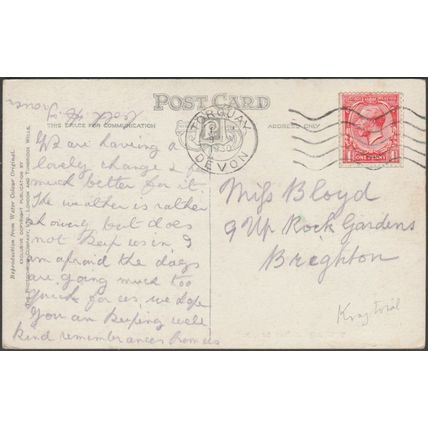 POST CARD
THIS SPACE FOR COMMUNICATION
ADDRESS ONLY
TORQUAY
DEVON
ONE PENNY
We are having a
lovely change & feel
much better for it
The weather is rather
showery but does
not keep us in, I
am afraid the days
are going much too
quick for us, we hope
you are keeping well
kind remembrances from us
Yours
Miss Bloyd
9 Up Rock Gardens
Brighton
Reproduction from Water Colour Original.
EXCLUSIVE COPYRIGHT PUBLICATION BY
TUNBRIDGE WELLS.